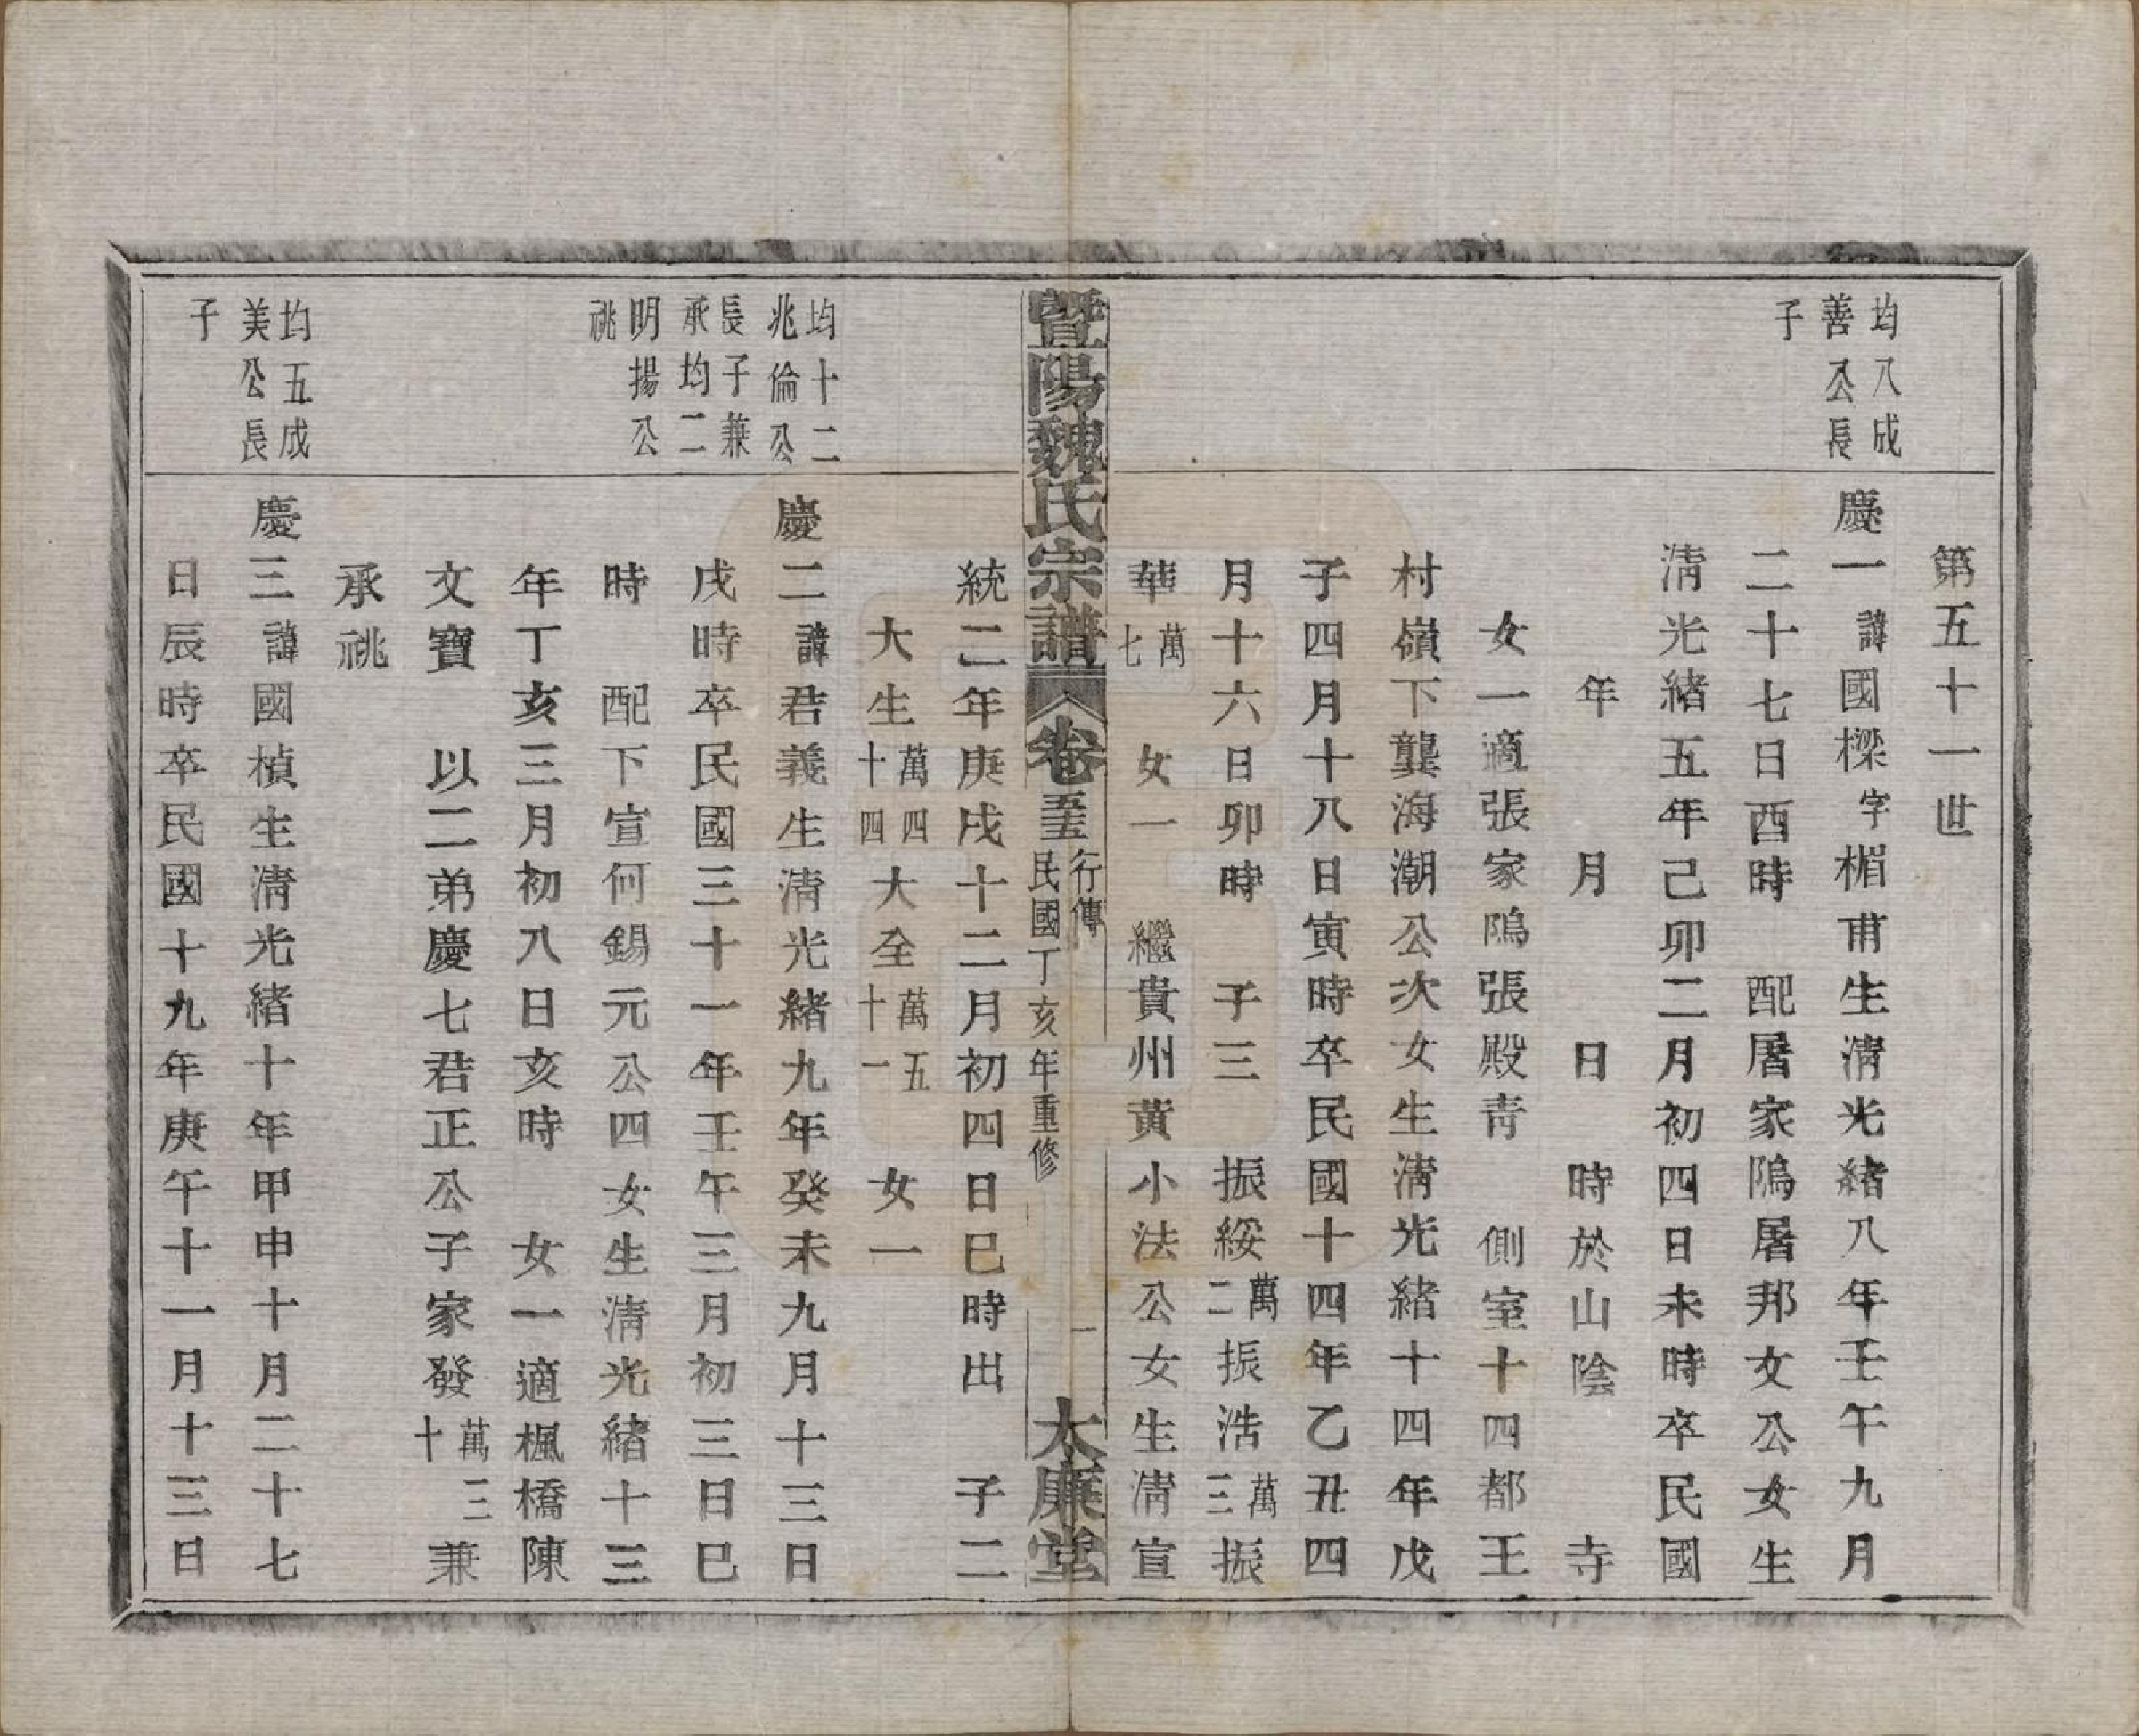 第五十一世
均八成
善公長
子
慶一諱國樑字楣甫生淸光緒八年壬午九月
二十七日酉時　配屠家隖屠邦文公女生
淸光緒五年己卯二月初四日未時卒民國
年　月　日　時於山陰　寺
女一適張家隖張殿靑　側室十四都王
村嶺下龔海潮公次女生淸光緒十四年戊
子四月十八日寅時卒民國十四年乙丑四
月十六日卯時　子三　振綏萬二振浩萬三振
華萬七　女一　繼貴州黃小法公女生淸宣
暨陽魏氏宗譜
卷五五
行傳
民國丁亥年重修
一
大廉堂
統二年庚戌十二月初四日巳時出　子二
大生萬四十四大全萬五十一　女一
均十二
兆倫公
長子兼
承均二
明揚公
祧
慶二諱君義生淸光緒九年癸未九月十三日
戌時卒民國三十一年壬午三月初三日巳
時　配下宣何錫元公四女生淸光緒十三
年丁亥三月初八日亥時　女一適楓橋陳
文寶　以二弟慶七君正公子家發萬三十兼
承祧
均五成
美公長
子
慶三諱國楨生淸光緒十年甲申十月二十七
日辰時卒民國十九年庚午十一月十三日